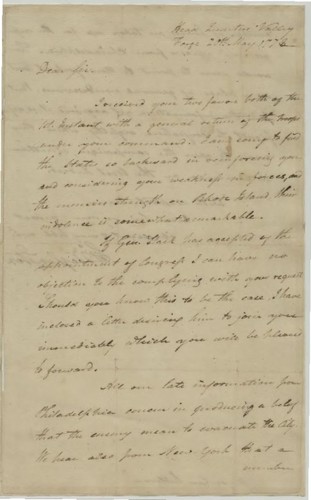 Head Quarters Valley
Forge 21st May 1778
Dear Sir,
I received your two favors both of the
11th Instant with a general return of the troops
under your command. I am sorry to find
the States so backward in reinforcing you
and considering your weakness in forces, and
the enemies strength on Rhode Island their
indolence is somewhat remarkable.
If Genl Stark has accepted of the
appointment of Congress I can have no
objection to the complying with your request
Should you know this to be the case I have
inclosed a letter desiring him to join you
immediately which you will be pleased
to forward.
All our late information from
Philadelphia concur in producing a belief
that the enemy mean to evacuate the City.
We hear also from New York that a
number